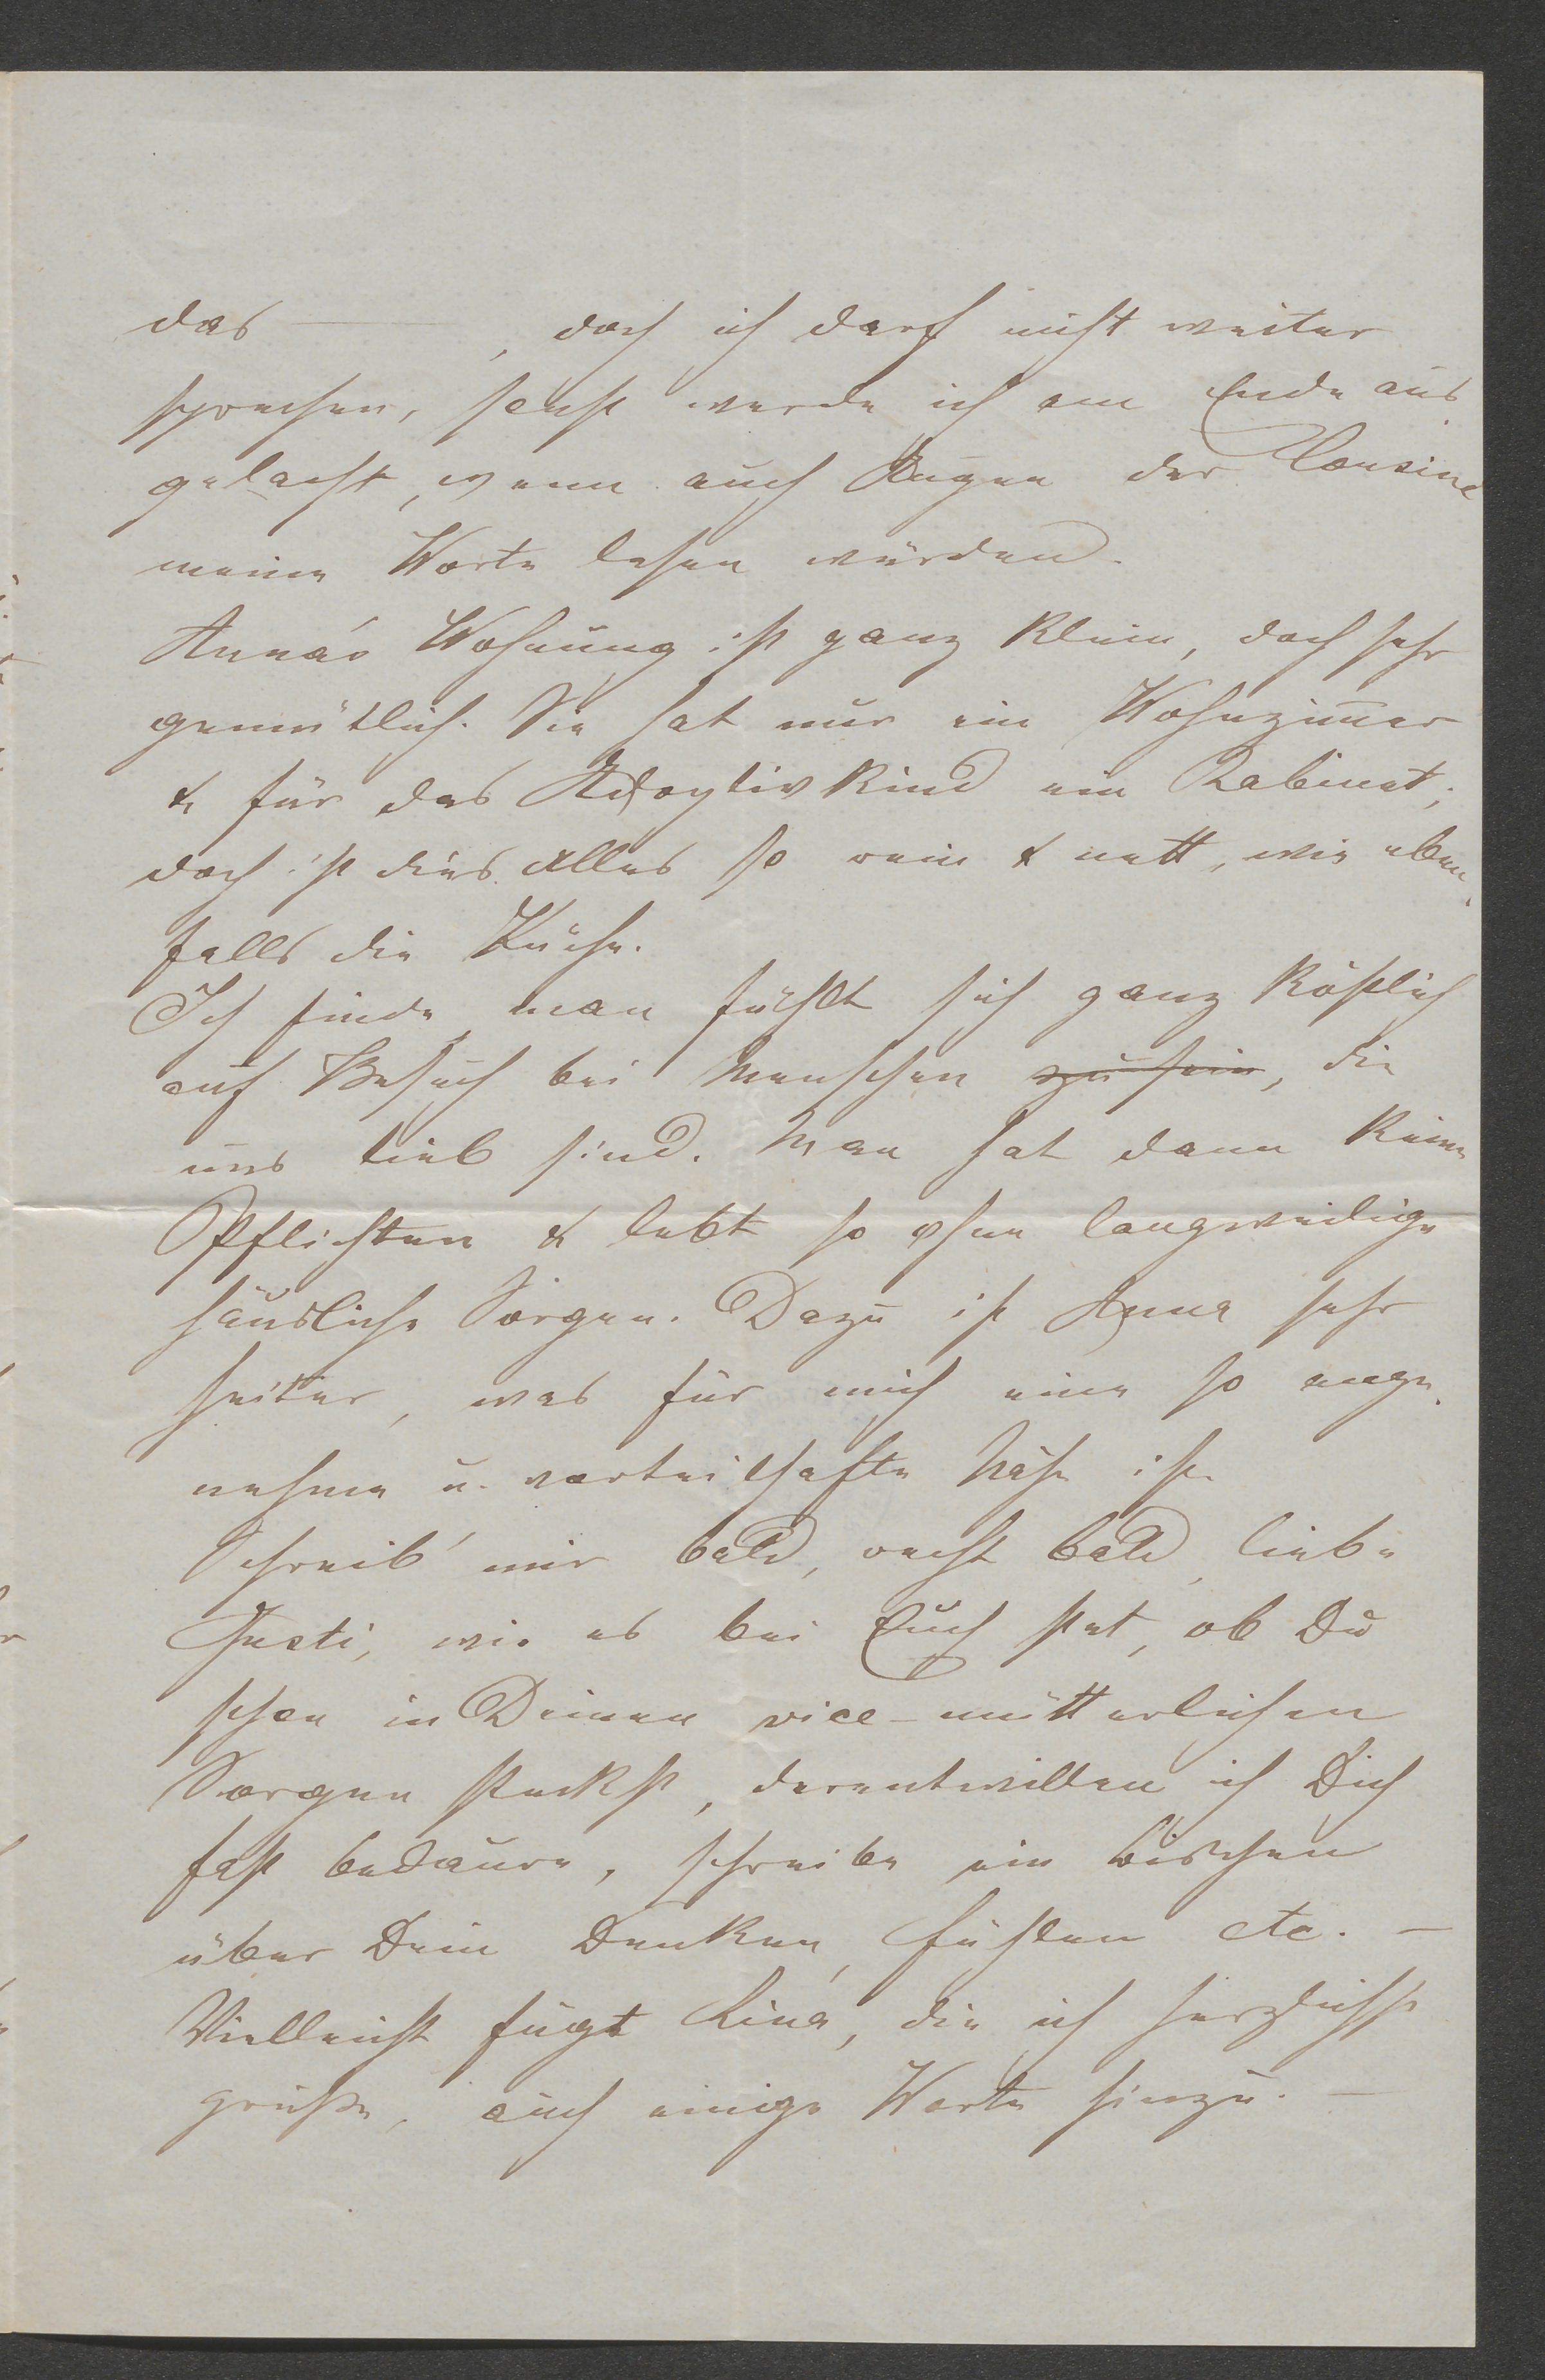 das ——— , doch ich darf nicht weiter
sprechen, sonst werde ich am Ende aus
gelacht, wenn auch Augen der Cousine
meine Worte lesen würden.
Anna's Wohnung ist ganz klein, doch sehr
gemütlich. Sie hat nur ein Wohnzim̅er
& für das Adoptivkind ein Kabinet;
doch ist dies Alles so rein & nett, wie eben,
falls die Küche.
Ich finde, man fühlt sich ganz köstlich
auf Besuch bei Menschen zu sein, die
uns lieb sind. Man hat dann keine
Pflichten & lebt so ohne langweilige
häusliche Sorgen. Dazu ist Anna sehr
heiter, was für mich eine so ange,
nehme u. vorteilhafte Nähe ist.
Schreib' mir bald, recht bald, liebe
Gusti, wie es bei Euch stet, ob Du
schon in Deinen vice-mütterlichen
Sorgen steckst, derentwillen ich Dich
fast bedaure, schreibe ein bischen
über Dein Denken, Fühlen etc. —
Vielleicht fügt Lina, die ich herzlichst
grüße, auch einige Worte hinzu. —